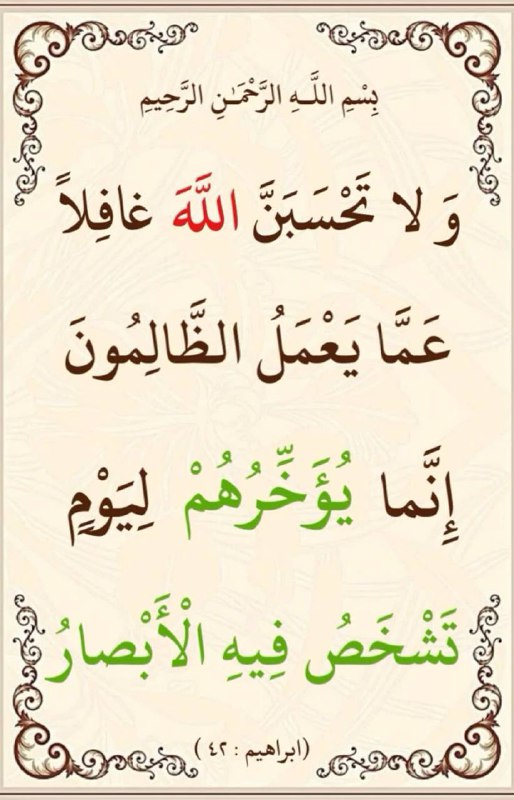 بِسْمِ اللَّـهِ الرَّحْمَـٰنِ الرَّحِيمِ
وَ لا تَحْسَبَنَّ اللَّهَ غافِلاً
عَمَّا يَعْمَلُ الظَّالِمُونَ
إِنَّما يُؤَخِّرُهُمْ لِيَوْمٍ
تَشْخَصُ فِيهِ الْأَبْصارُ
(ابراهیم : ٤٢)